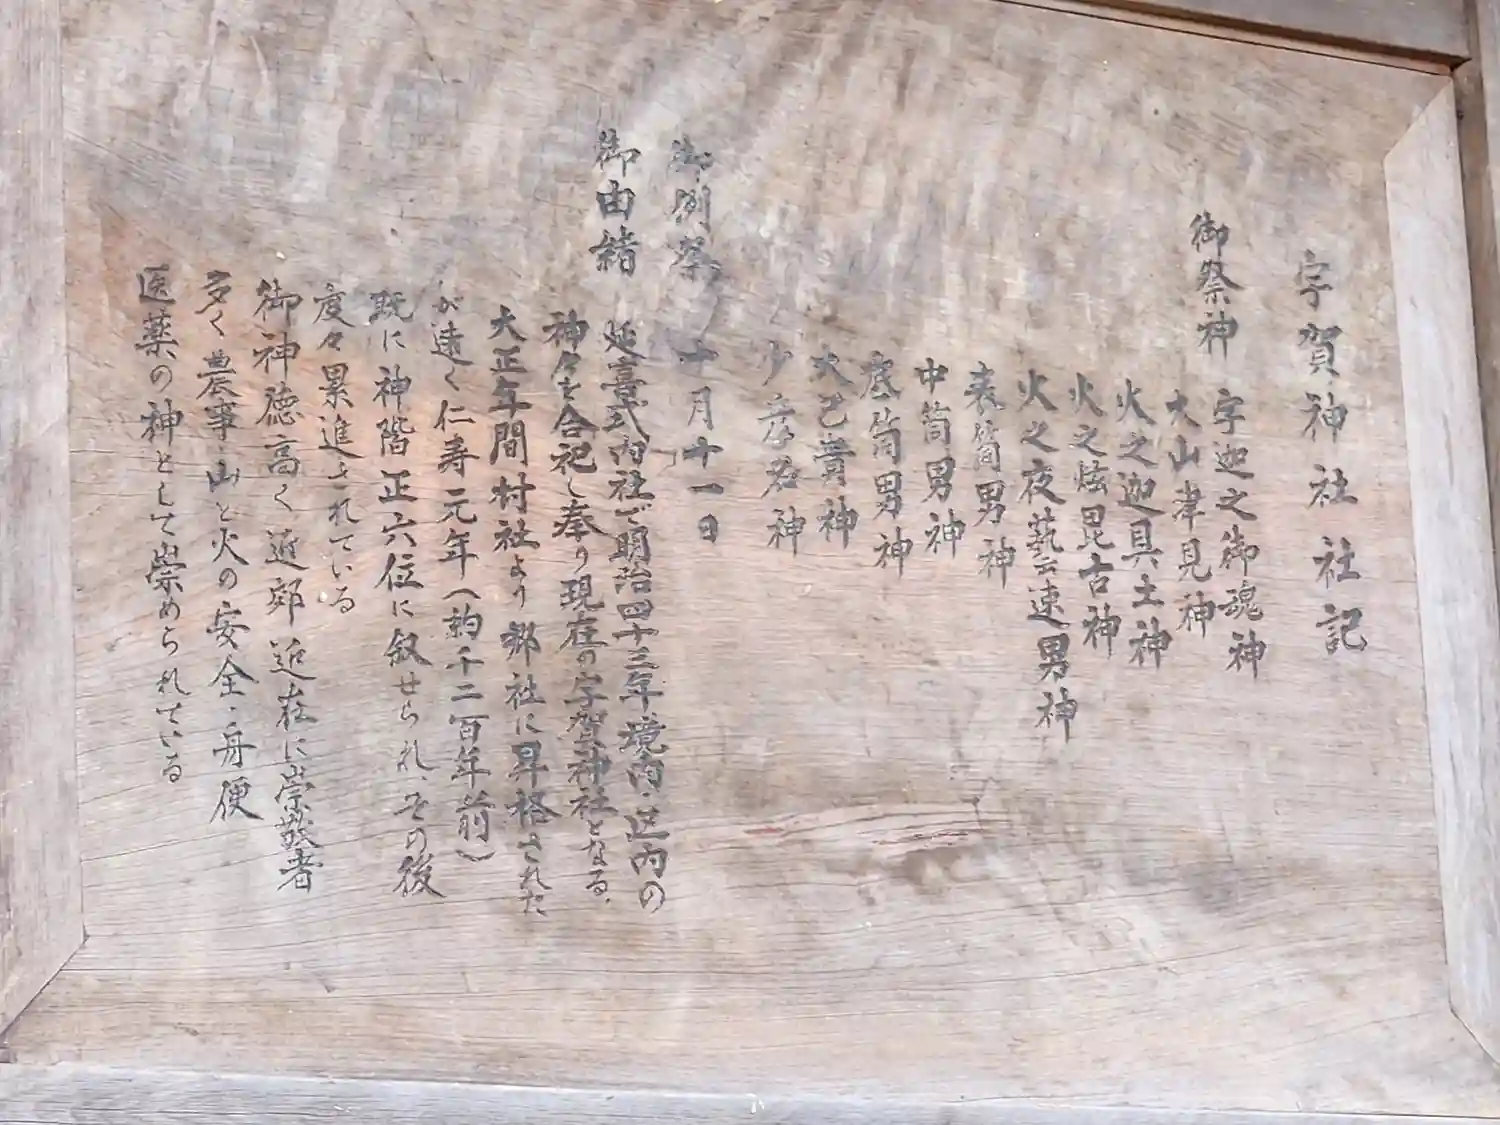 宇賀神社社記
御祭神
宇迦之御魂神
大山津見神
火之迦具土神
火之炫毘古神
火之夜藝速男神
表筒男神
中筒男神
底筒男神
大己貴神
少彦名神
御例祭 十月十一日
御由緒 延喜式内社で明治四十三年境内・区内の
神々を合祀し奉り現在の宇賀神社となる.
大正年間村社より郷社に昇格された
が遠く仁寿元年（約千二百年前）
既に神階正六位に叙せられ、その後
度々累進されている
御神徳高く近郊近在に崇敬者
多く農事・山と火の安全・舟便
医薬の神として崇められている